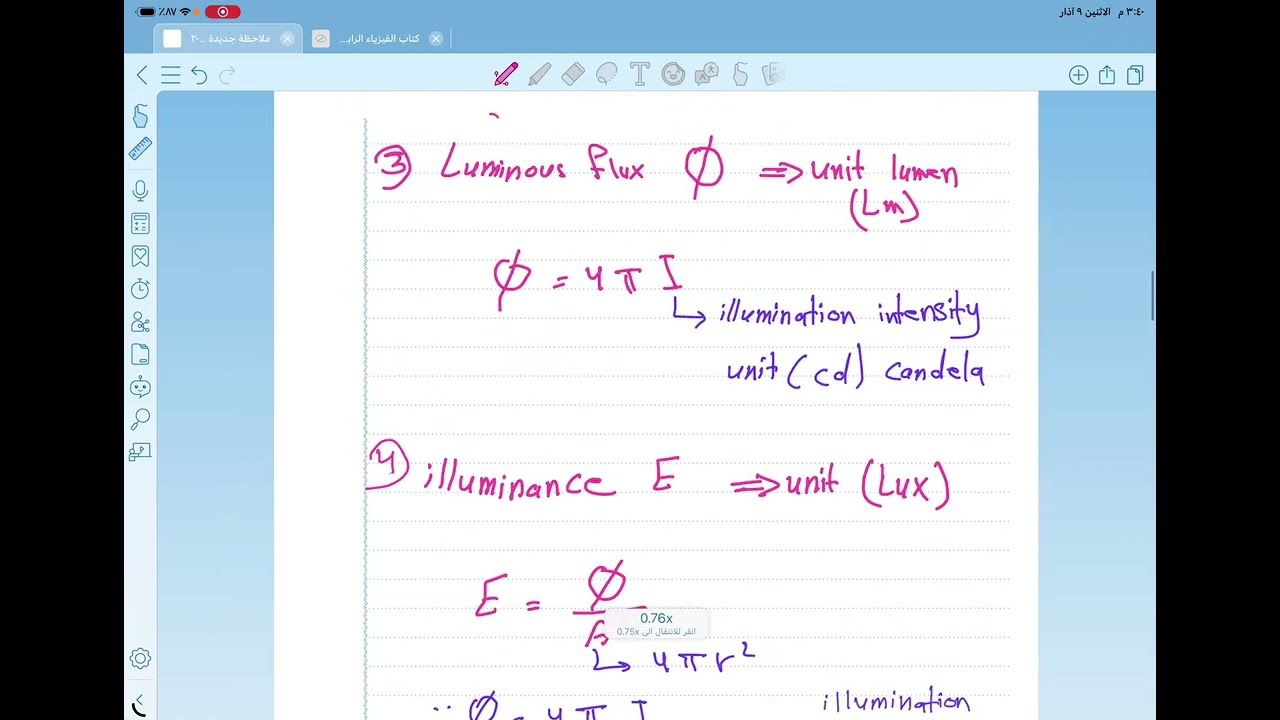 ٣:٤٠ م الاثنين ٩ آذار
٪٨٧
ملاحظة جديدة ...٢٠
كتاب الفيزياء الراب...
3 Luminous flux Ø ⇒ unit lumen
(Lm)
Ø = 4 π I
↳ illumination intensity
unit (cd) candela
4 illuminance E ⇒ unit (Lux)
E = Ø
0.76x
انقر للانتقال إلى 0.75x
↳ 4 π r²
∵ Ø = 4 π I
illumination